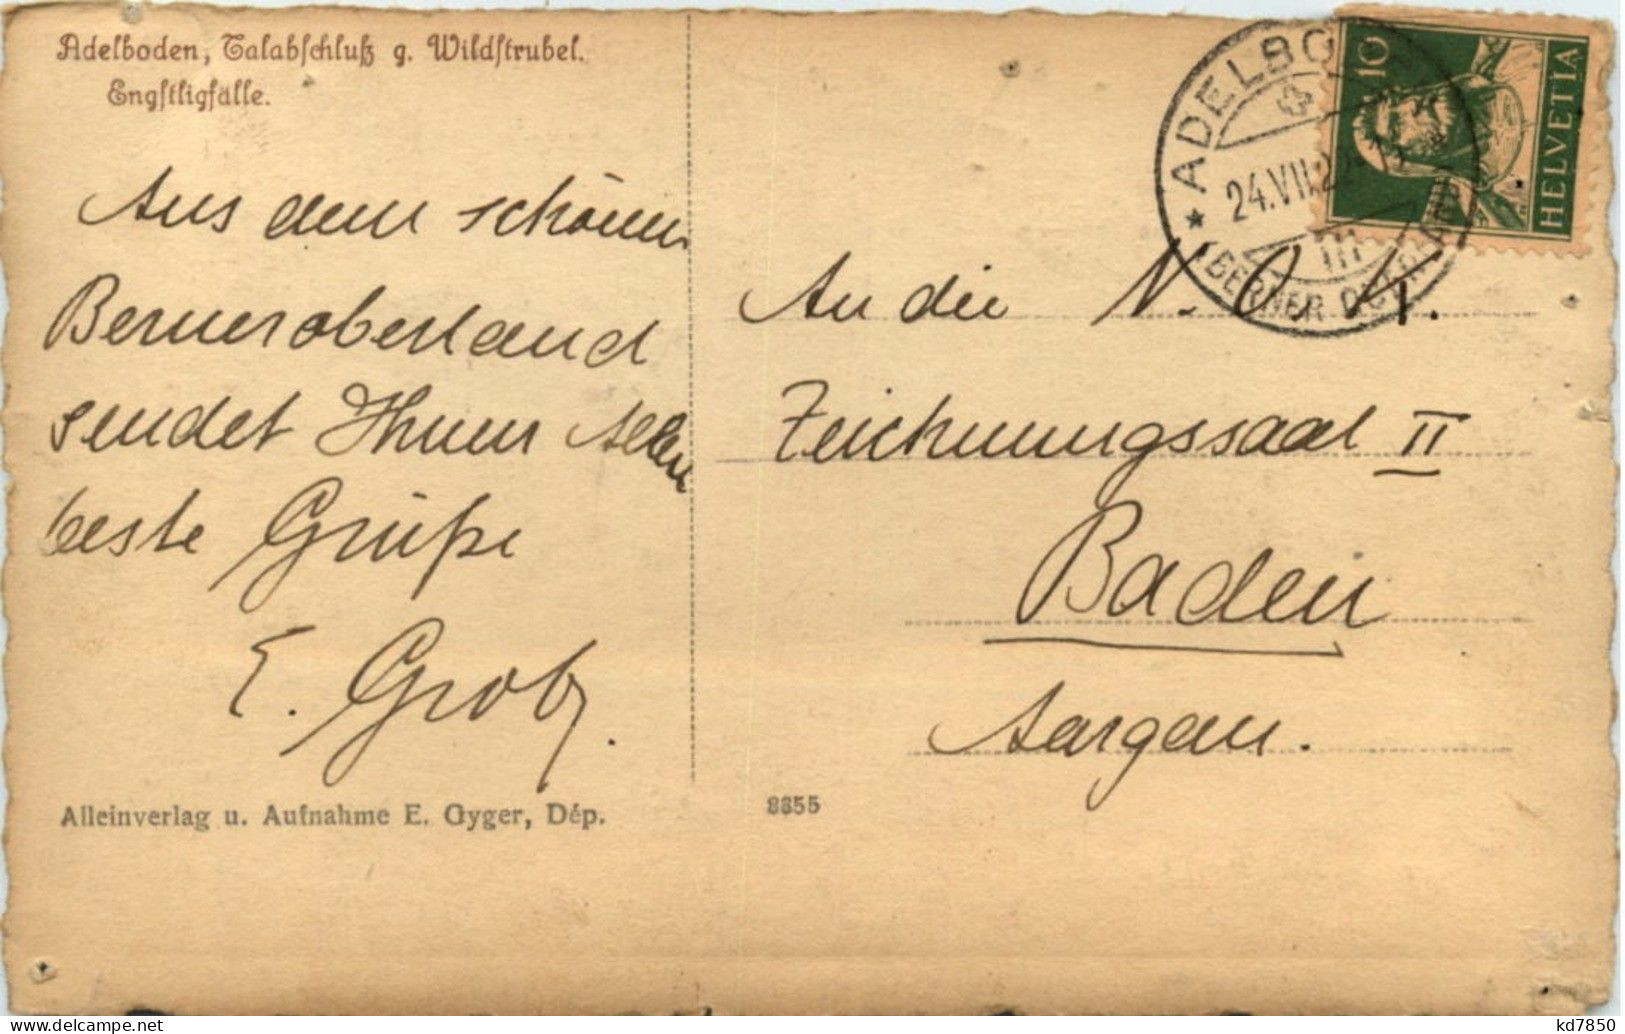 Adelboden, Talabschluß g. Wildstrubel.
Engstligfälle.
Aus dem schönen
Berneroberland
sendet Ihnen Allen
beste Grüße
E. Grob.
Alleinverlag u. Aufnahme E. Gyger, Dép.
8855
ADELBO
24.VII.2
III
BERNER OBERLAND
10
HELVETIA
An die N. O. K.
Zeichnungssaal II
Baden
Aargau.
www.delcampe.net
kd7850